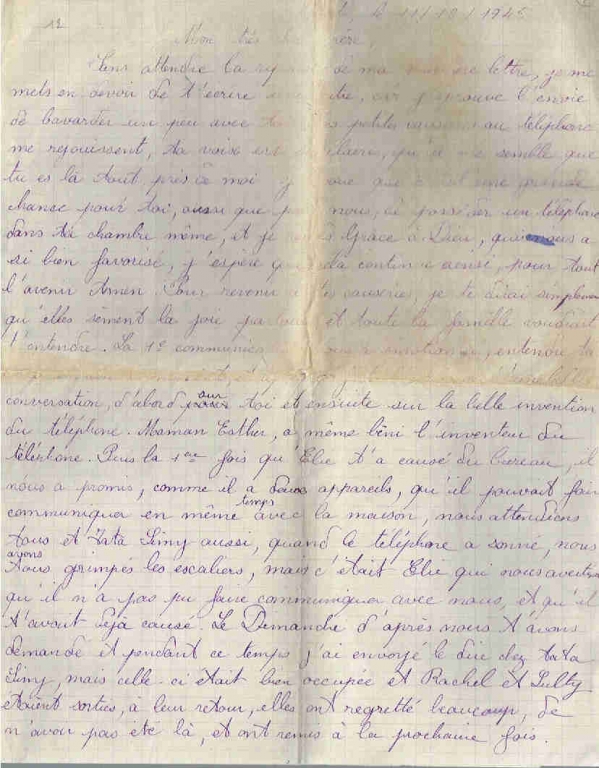 12
le 11/10/1945
Mon très cher frère,
Sans attendre la de ma lettre, je me
mets en devoir de t'écrire car j'éprouve l'envie
de bavarder un peu avec petites causeries au téléphone
me rejouissent, ta voix est si qu'il me semble que
tu es là tout près de moi que c'est une grande
chance pour toi, aussi que pour nous, de posséder un téléphone
dans ta chambre même, et je Grace à Dieu, qui nous a
si bien favorisé, j'espère que cela continue ainsi, pour tout
l'avenir Amen. Pour revenir à causeries, je te dirai simplement
qu'elles sèment la joie partout et toute la famille voudrait
t'entendre. La 1e communication entendu ta
conversation, d'abord sur toi et ensuite sur la belle invention
du téléphone. Maman Esther, a même béni l'inventeur du
téléphone. Puis la 1ère fois qu'Elie t'a causé du bureau, il
nous a promis, comme il a deux appareils, qu'il pouvait faire
communiquer en même temps avec la maison, nous attendions
tous et Tata Simy aussi, quand le téléphone a sonné, nous
avons tous grimpés les escaliers, mais c'était Elie qui nous avertissait
qu'il n'a pas pu faire communiquer avec nous, et qu'il
t'avait déjà causé. Le Dimanche d'après nous t'avons
demandé et pendant ce temps j'ai envoyé le dire chez tata
Simy, mais celle ci était bien occupée et Rachel et
étaient sorties, à leur retour, elles ont regretté beaucoup, de
n'avoir pas été là, et ont remis à la prochaine fois.